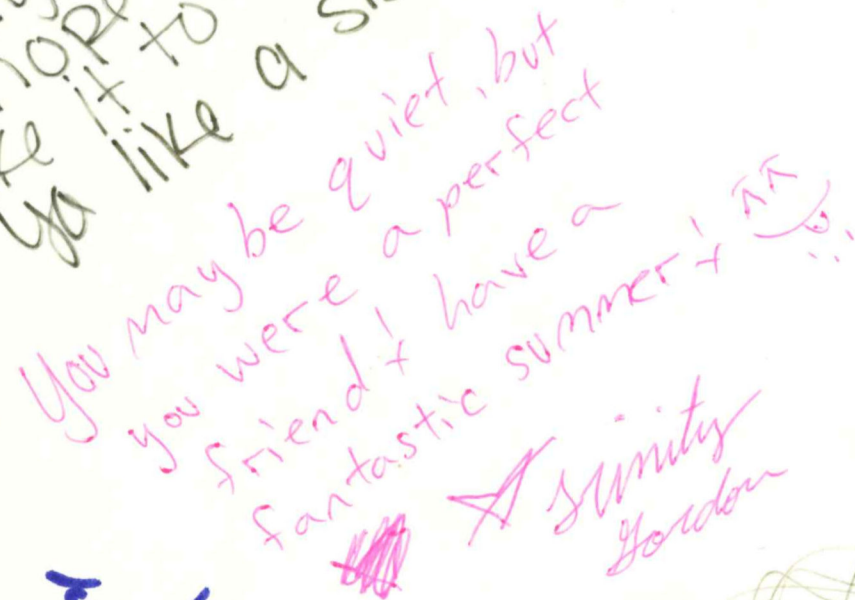 it to
ya like a
You may be quiet, but
you were a perfect
friend! have a
fantastic summer! ^^
Gordon